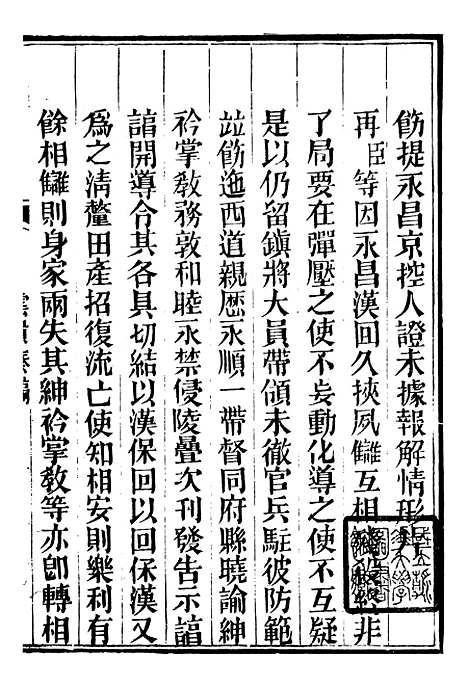 飭提永昌京控人證未據報解情形
再臣等因永昌漢回久挾夙讎互相 非
了局要在彈壓之使不妄動化導之使不互疑
是以仍留鎮將大員帶領未徹官兵駐彼防範
竝飭迤西道親歷永順一帶督同府縣曉諭紳
衿掌敎務敦和睦永禁侵陵疊次刊發告示諳
諳開導令其各具切結以漢保回以回保漢又
為之清釐田產招復流亡使知相安則樂利有
餘相讎則身家兩失其紳衿掌敎等亦卽轉相